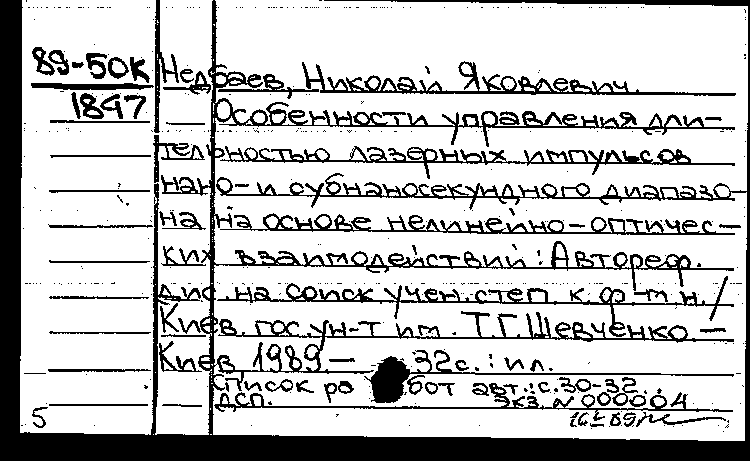 89-50К Недбаев, Николай Яковлевич.
1847 Особенности управления дли-
тельностью лазерных импульсов
нано- и субнаносекундного диапазо-
на на основе нелинейно-оптичес-
ких взаимодействий: Автореф.
дис. на соиск. учен. степ. к. ф-м. н. /
Киев. гос. ун-т им. Т.Г. Шевченко. —
Киев 1989. — 32с.: ил.
Список работ авт.: с. 30-32.
ДСП. Экз. N 000004
5